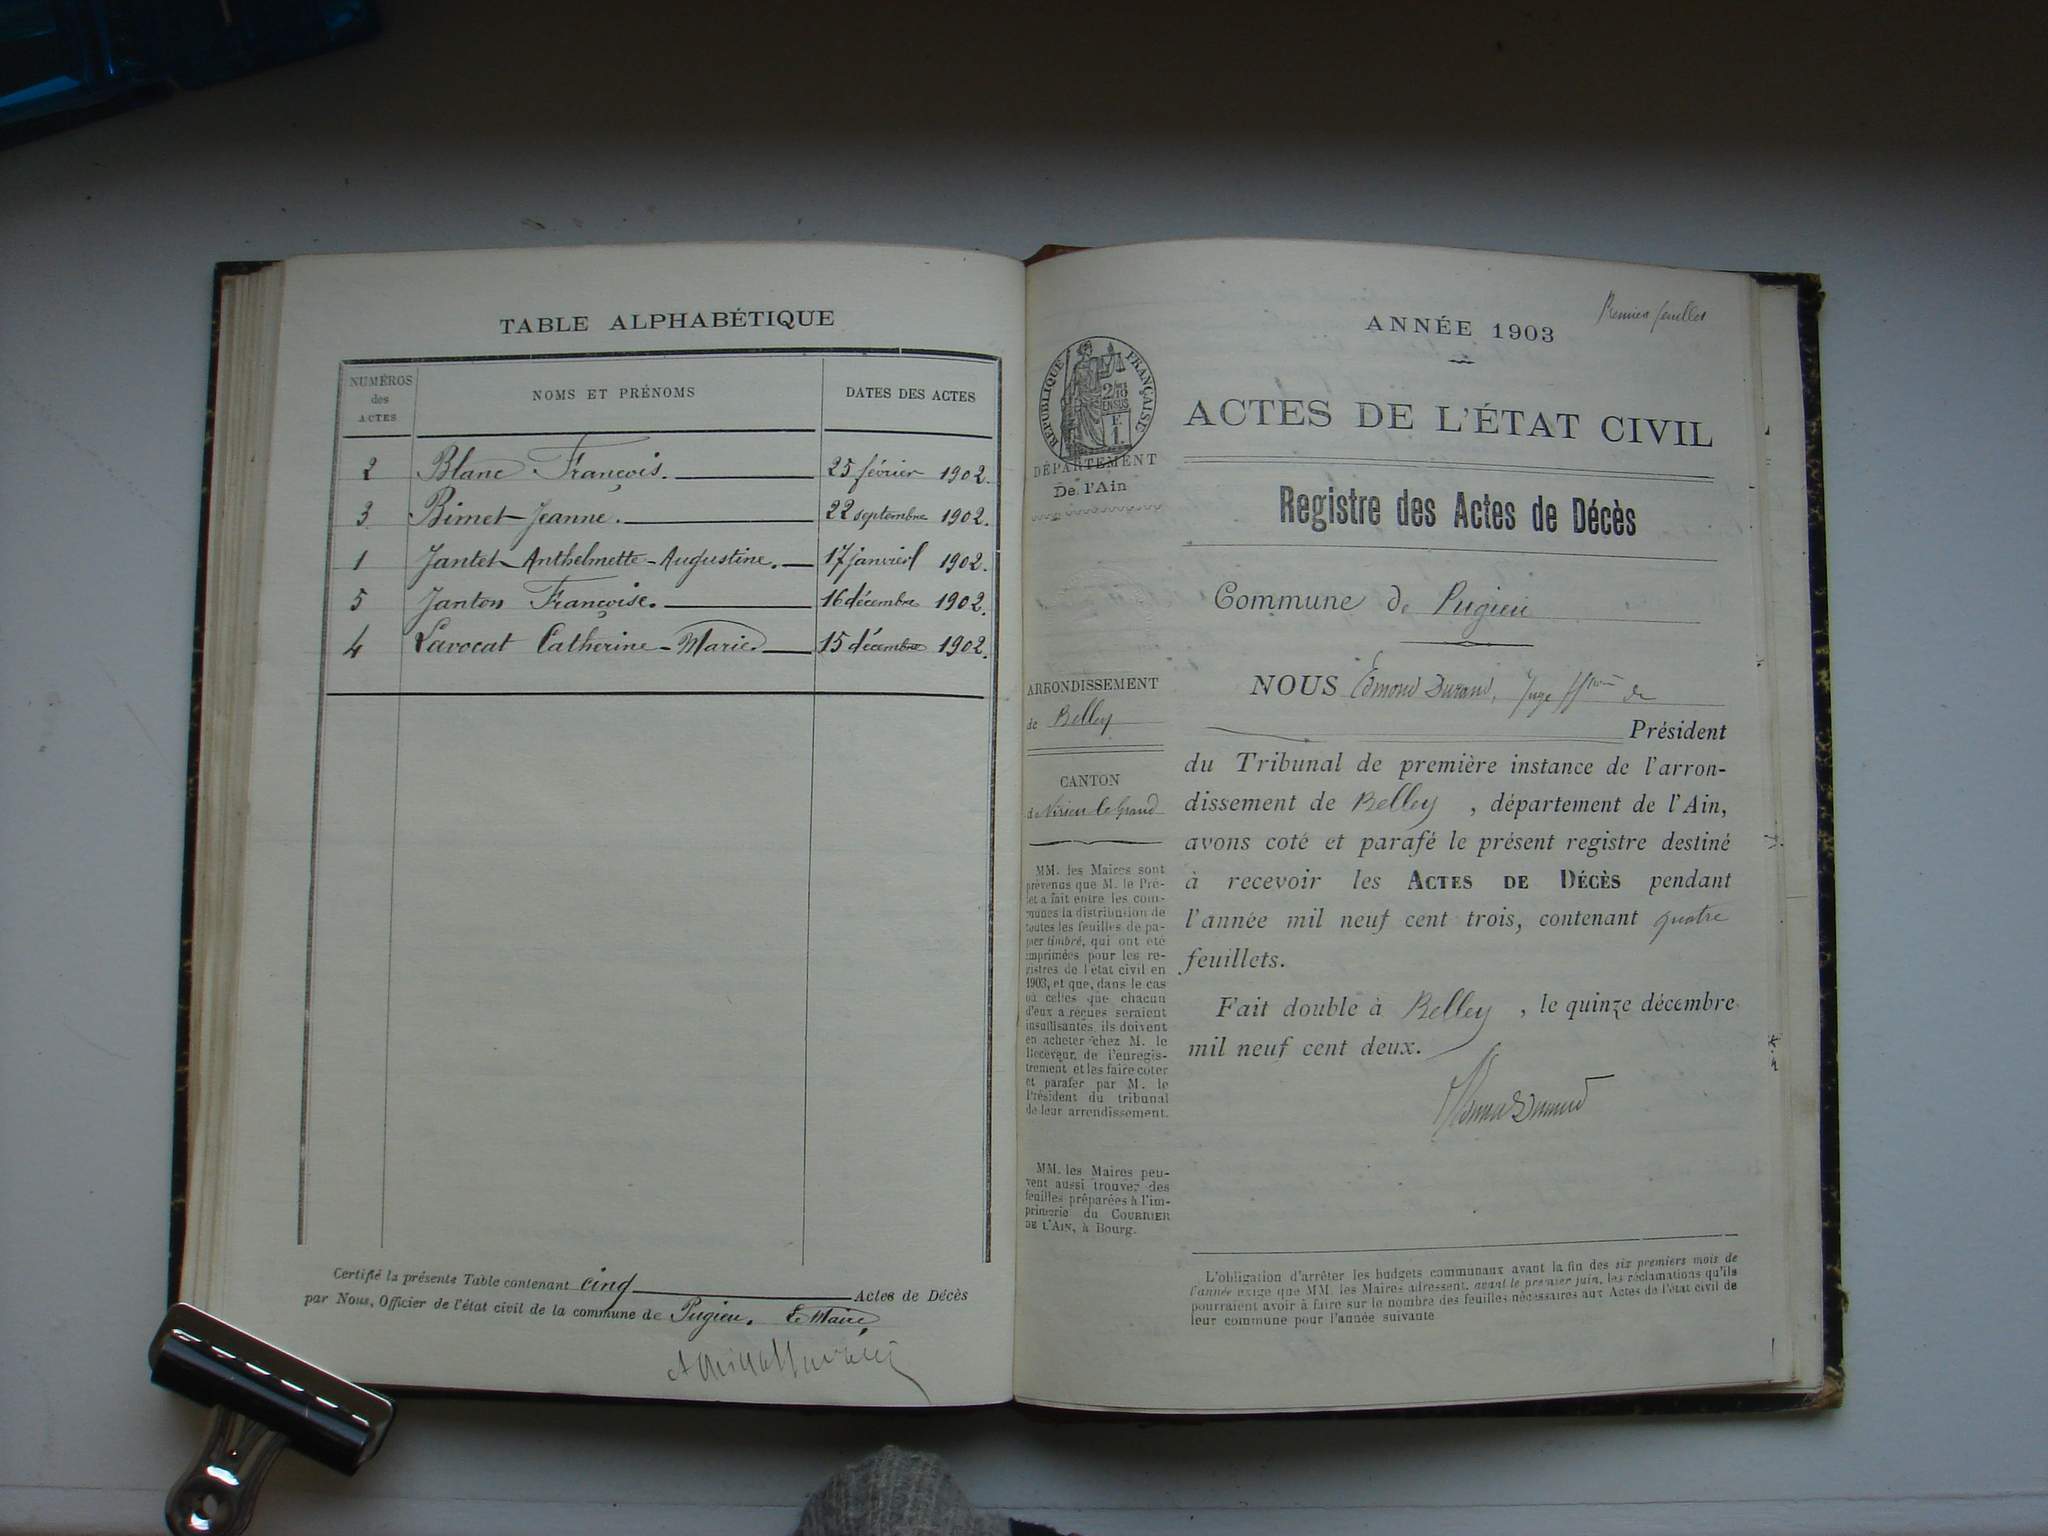 TABLE ALPHABÉTIQUE
NUMÉROS des ACTES
NOMS ET PRÉNOMS
DATES DES ACTES
2 Blanc François. 25 février 1902.
3 Bimet Jeanne. 22 septembre 1902.
1 Jantet Anthelmette-Augustine. 17 janvier 1902.
5 Janton Françoise. 16 décembre 1902.
4 Lavocat Catherine-Marie. 15 décembre 1902.
Certifié la présente Table contenant cinq Actes de Décès
par Nous, Officier de l'état civil de la commune de Pugieu. Le Maire,
Premier feuillet
ANNÉE 1903
RÉPUBLIQUE FRANÇAISE
2/10 EN SUS
F 1.
ACTES DE L'ÉTAT CIVIL
DÉPARTEMENT
De l'Ain
Registre des Actes de Décès
Commune de Pugieu
ARRONDISSEMENT
de Belley
CANTON
de Virieu le Grand
MM. les Maires sont
prévenus que M. le Pré-
fet a fait entre les com-
munes la distribution de
toutes les feuilles de pa-
pier timbré, qui ont été
imprimées pour les re-
gistres de l'état civil en
1903, et que, dans le cas
où celles que chacun
d'eux a reçues seraient
insuffisantes, ils doivent
en acheter chez M. le
Receveur de l'enregis-
trement et les faire coter
et parafer par M. le
Président du tribunal
de leur arrondissement.
MM. les Maires peu-
vent aussi trouver des
feuilles préparées à l'im-
primerie du COURRIER
DE L'AIN, à Bourg.
NOUS Edmond Durand, Juge de
Président
du Tribunal de première instance de l'arron-
dissement de Belley, département de l'Ain,
avons coté et parafé le présent registre destiné
à recevoir les ACTES DE DÉCÈS pendant
l'année mil neuf cent trois, contenant quatre
feuillets.
Fait double à Belley, le quinze décembre
mil neuf cent deux.
L'obligation d'arrêter les budgets communaux avant la fin des six premiers mois de
l'année exige que MM. les Maires adressent, avant le premier juin, les réclamations qu'ils
pourraient avoir à faire sur le nombre des feuilles nécessaires aux Actes de l'état civil de
leur commune pour l'année suivante